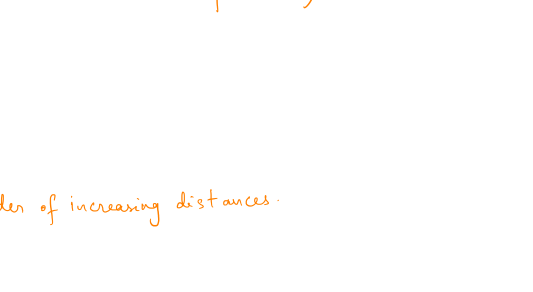 of increasing distances.